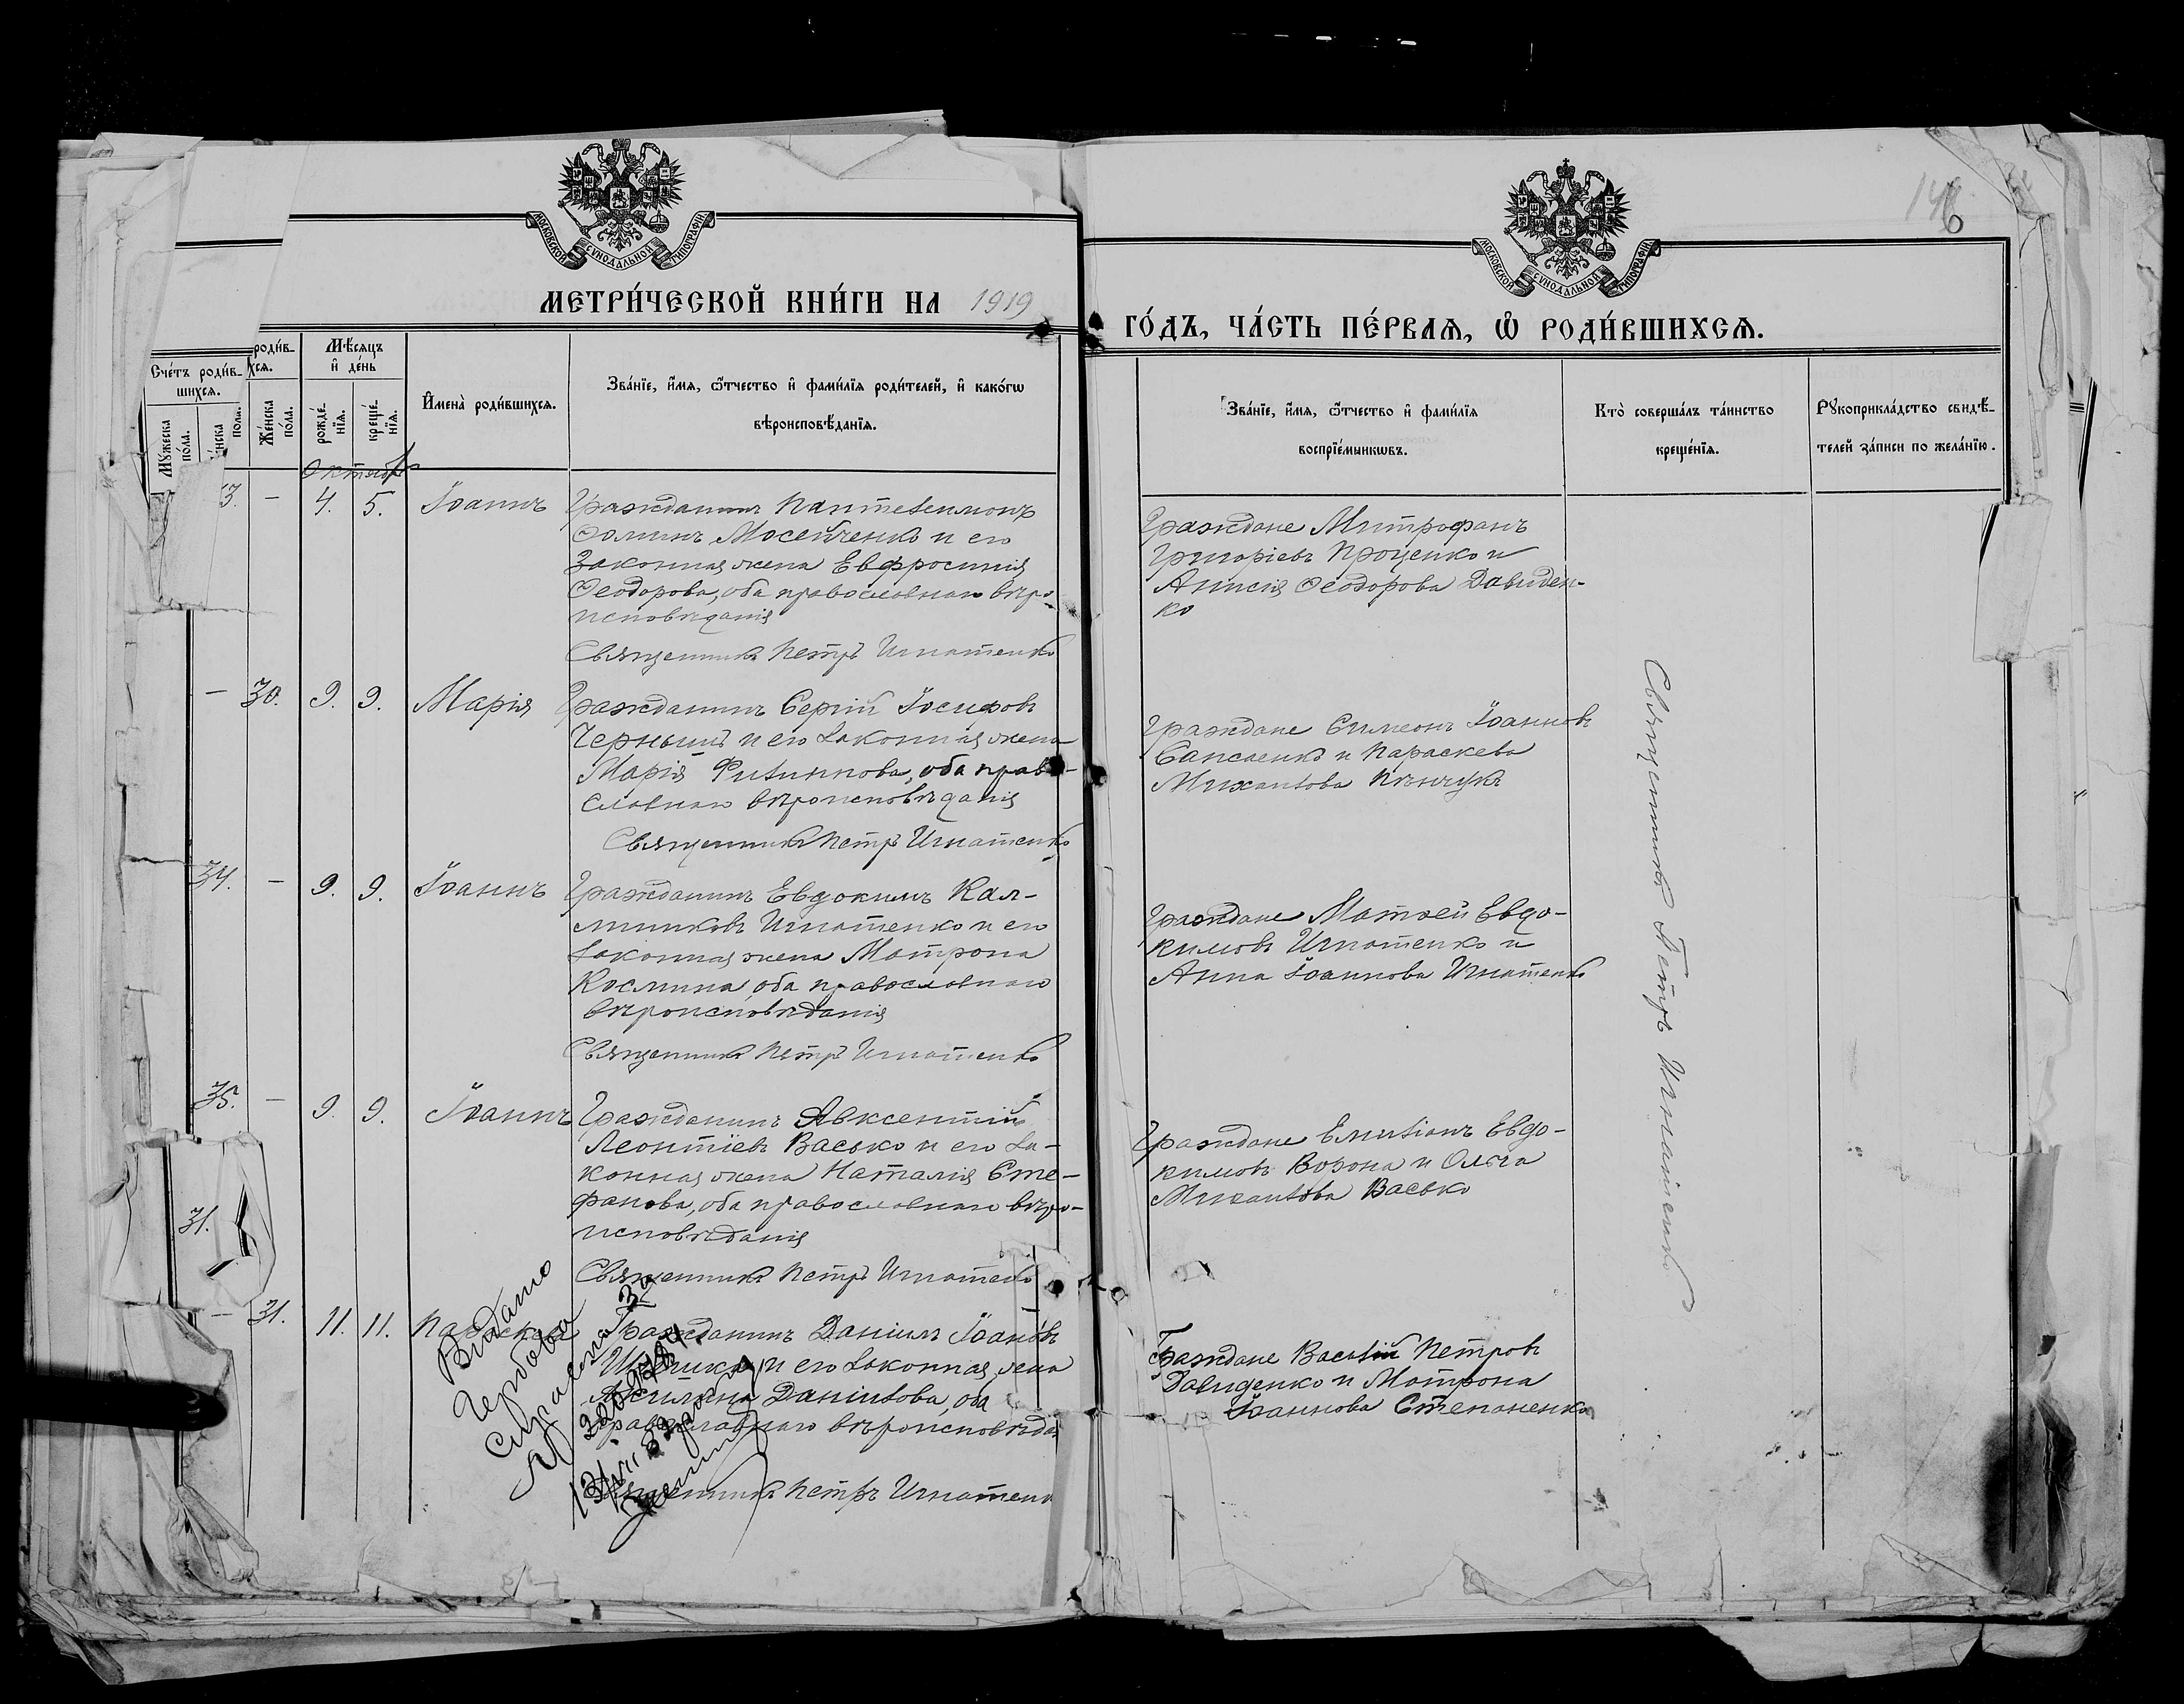 146
МОСКОВСКОЙ СѴНОДАЛЬНОЙ ТИПОГРАФІИ
МОСКОВСКОЙ СѴНОДАЛЬНОЙ ТИПОГРАФІИ
МЕТРИ́ЧЕСКОЙ КНИ́ГИ НА 1919
ГО́ДЪ, ЧА́СТЬ ПЕ́РВАѦ, Ѿ РОДИ́ВШИХСѦ.
Сче́тъ роди́в-
шихсѧ.
роди́в-
хсѧ.
Мꙋжеска по́ла.
Же́нска по́ла.
Мѣ́сѧцъ
и҆ де́нь
рожде́-
нїѧ.
креще́-
нїѧ.
И҆мена̀ роди́вшихсѧ.
Зва́нїе, и҆́мѧ, ѻ҆́тчество и҆ фами́лїѧ роди́телей, и҆ како́гѡ
вѣроисповѣ́данїѧ.
Зва́нїе, и҆́мѧ, ѻ҆́тчество и҆ фами́лїѧ
воспрїе́мникѡвъ.
Кто̀ соверша́лъ та́инство
креще́нїѧ.
Рꙋкоприкла́дство свидѣ́-
телей за́писи по жела́нїю.
Октябрь
3. — 4. 5. Іоаннъ
Гражданинъ Пантелеимонъ
Ѳоминъ Мосейченко и его
законная жена Евфросинія
Ѳеодорова, оба православнаго вѣро-
исповѣданія
Священникъ Петръ Игнатенко
Граждане Митрофанъ
Григоріевъ Проценко и
Анисія Ѳеодорова Давиден-
ко
— 30. 9. 9. Марія
Гражданинъ Сергій Іосифовъ
Черныш и его законная жена
Марія Филиппова, оба право-
славнаго вѣроисповѣданія
Священникъ Петръ Игнатенко
Граждане Симеонъ Іоанновъ
и Параскева
Михаилова
34. — 9. 9. Іоаннъ
Гражданинъ Евдокимъ Кал-
линиковъ Игнатенко и его
законная жена Матрона
Космина, оба православнаго
вѣроисповѣданія
Священникъ Петръ Игнатенко
Граждане Матѳей Евдо-
кимовъ Игнатенко и
Анна Іоаннова Игнатенко
35. — 9. 9. Іоаннъ
Гражданинъ Авксентій
Леонтіевъ Васько и его за-
конная жена Наталія Сте-
фанова, оба православнаго вѣро-
исповѣданія
Священникъ Петръ Игнатенко
Граждане Емиліанъ Евдо-
кимовъ Ворона и Ольга
Михаилова Васько
31.
— 31. 11. 11. Параскева
Гражданинъ Даніилъ Іоановъ
и его законная жена
Даніилова, оба
православнаго вѣроисповѣда
Священникъ Петръ Игнатенк
Граждане Василій Петровъ
Давиденко и Матрона
Іоаннова Степаненко
Священникъ Петръ Игнатенко
Видано